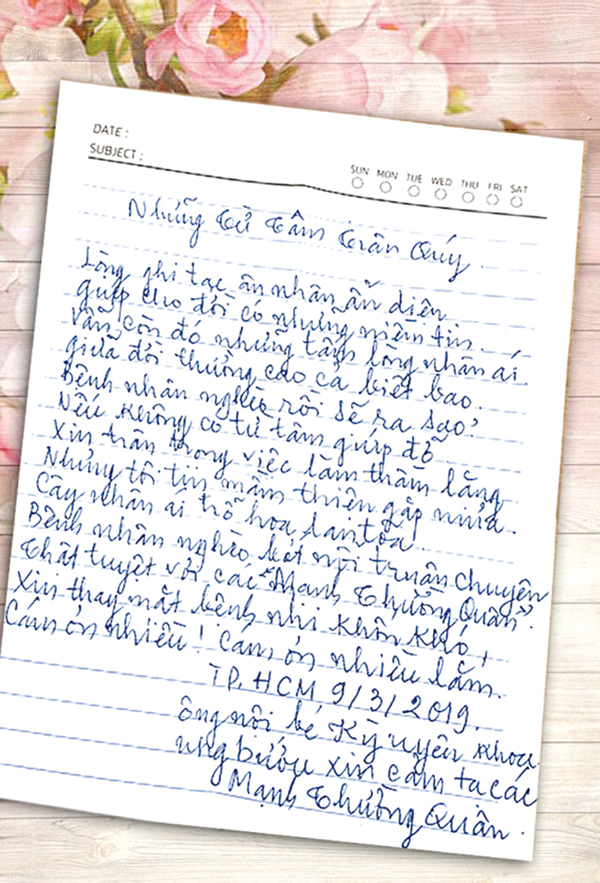 DATE :
SUBJECT :
SUN MON TUE WED THU FRI SAT
Những Từ Tâm Trân Quý.
Lòng ghi tạc ân nhân ẩn diện
giúp cho đời có những niềm tin.
Vẫn còn đó những tấm lòng nhân ái.
giữa đời thường cao cả biết bao.
Bệnh nhân nghèo rồi sẽ ra sao?
Nếu không có từ tâm giúp đỡ
Xin trân trọng việc làm thầm lặng
Nhưng tôi tin mầm thiện gấp mười.
Cây nhân ái trổ hoa lan tỏa.
Bệnh nhân nghèo bớt nỗi truân chuyên
Thật tuyệt vời các "Mạnh Thường Quân".
Xin thay mặt bệnh nhi khốn khó,
Cám ơn nhiều! Cám ơn nhiều lắm.
TP. HCM 9/3/2019.
ông nội bé Kỳ uyên khoa
ung bướu xin cảm tạ các
Mạnh Thường Quân.